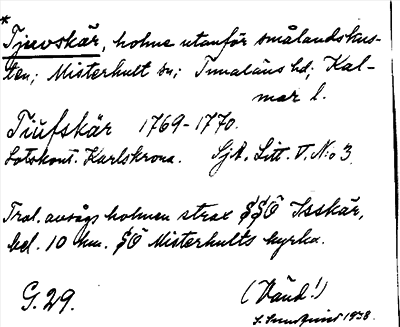 * Tjuvskär, holme utanför smålandskus-
ten; Misterhult sn; Tunaläns hd; Kal-
mar l.
Tiufskär 1769-1770.
Lotskont. Karlskrona. SjA. Litt. V. N:o 3
Trol. avségs holmen strax SSÖ Isskär,
bel. 10 km. SÖ Misterhults kyrka.
G. 29.
(Vänd!)
1938.